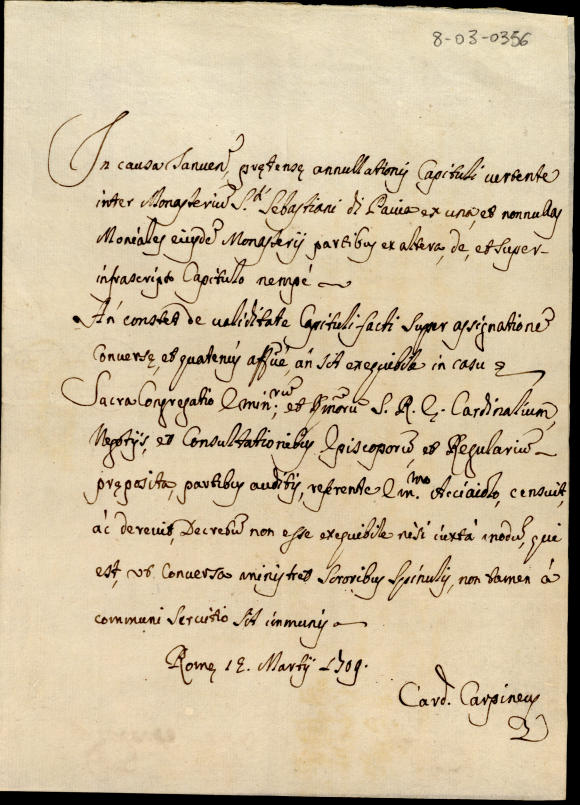 8-03-0356
In causa Januen̄, prętensę annullationis Capituli vertente
inter Monasteriū S.ti Sebastiani di Pavia ex una, et nonnullas
Moniales eiusdē Monasterij partibus ex altera, de, et super
infrascripto Capitulo nempé
An constet de validitate Capituli facti super assignatione
Conversę, et quatenus affirē, an sit exequibile in casu
Sacra Congregatio Emin.rum, et S. R. E. Cardinalium,
Negotijs, et Consultationibus Episcoporū, et Regularium
pręposita, partibus auditis, referente Em.mo Acciaiolo, censuit,
ác decrevit, Decretū non esse exequibile nisi iuxta modū, qui
est, ut Conversa ministret Sororibus Spinulis, non tamen á
communi servitio sit immunis
Romę 1 Martij 1709.
Card. Carpineus